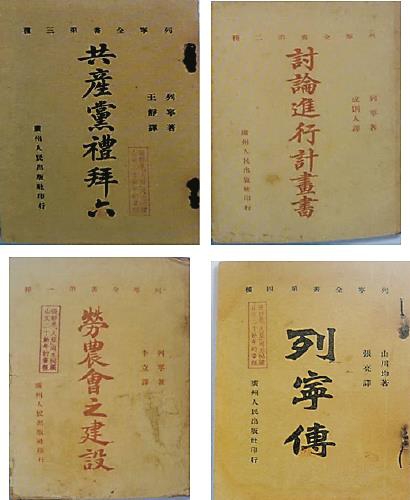 列寧全書第三種
列寧著
王靜譯
共產黨禮拜六
廣州人民出版社印行
列寧全書第二種
列寧著
成則人譯
討論進行計畫書
廣州人民出版社印行
列寧全書第一種
列寧著
李立譯
勞農會之建設
廣州人民出版社印行
列寧全書第四種
山川均著
張亮譯
列寧傳
廣州人民出版社印行